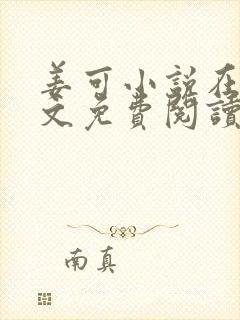 姜可小説在
文免費閱讀
南真